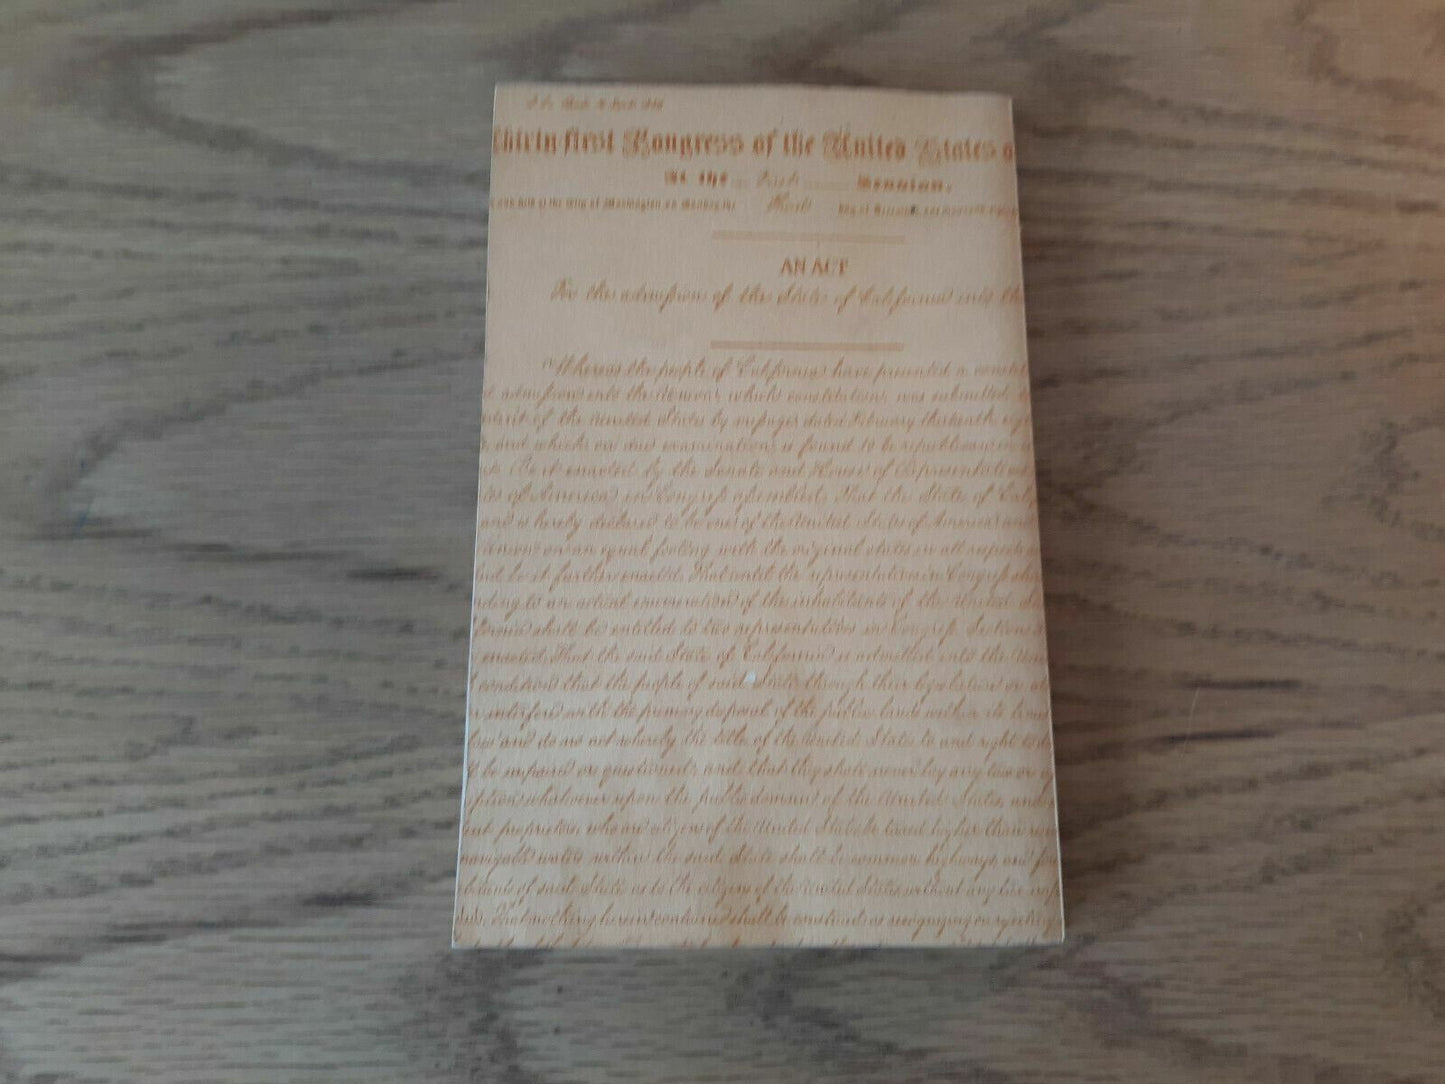 Thirty first Congress of the United States o
At the First Session,
city of Washington, on Monday the Third day of December,
AN ACT
For the admission of the State of California into the
Whereas the people of California have presented a constit
admission into the Union, which constitution was submitted to
of the United States by message dated February thirteenth eigh
and which on due examination is found to be republican in
Be it enacted by the Senate and House of Representatives
of America in Congress assembled. That the State of Calif
and is hereby declared to be one of the United States of America and
on an equal footing with the original states in all respects
be it further enacted. That until the representatives in Congress sha
ding to an actual enumeration of the inhabitants of the United Sta
fornia shall be entitled to two representatives in Congress. Section 3
enacted. That the said State of California is admitted into the Uni
condition that the people of said State through their legislature or
interfere with the primary disposal of the public lands within its limi
law and do no act whereby the title of the United States to and right to
be impaired or questioned; and that they shall never lay any tax or
ption whatsoever upon the public domain of the United States, and
ent proprietors who are citizens of the United States be taxed higher than
navigable waters within the said State shall be common highways, and for
bitants of said State as to the citizens of the United States, without any tax, imp
That nothing herein contained shall be construed as recognizing or rejecting